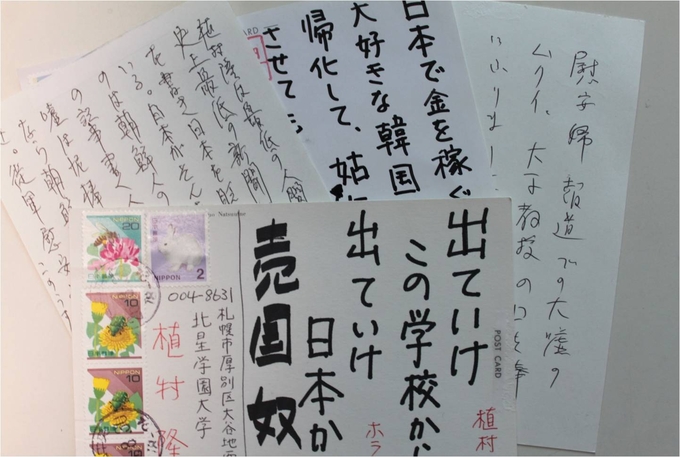 慰安婦報道での大嘘の
ムクイ、大学教授の口を
日本で金を稼ぐ
大好きな韓国
帰化して、姑
させても
植村隆は最低の人間
史上最低の新聞
を書き日本を貶
いる。日本がそん
のは朝鮮人の
の記事書く人
嘘は泥棒
なら朝鮮
従軍慰安
POST CARD
植村
出ていけ
この学校から
ホラ
出ていけ
日本か
売国奴
004-8631
札幌市厚別区大谷地西
北星学園大学
植村隆
NIPPON 20
NIPPON 2
NIPPON 10
NIPPON 10
NIPPON 10